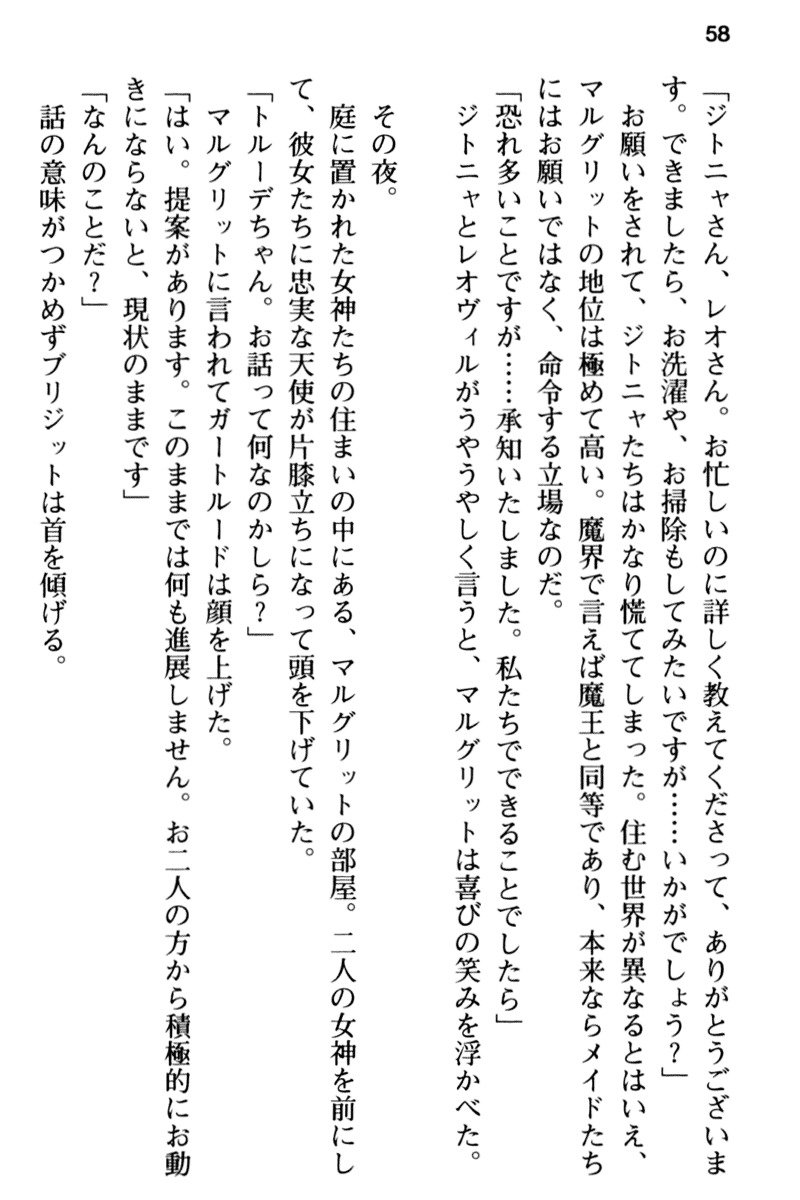 58
「ジトニャさん、レオさん。お忙しいのに詳しく教えてくださって、ありがとうございま
す。できましたら、お洗濯や、お掃除もしてみたいですが……いかがでしょう？」
お願いをされて、ジトニャたちはかなり慌ててしまった。住む世界が異なるとはいえ、
マルグリットの地位は極めて高い。魔界で言えば魔王と同等であり、本来ならメイドたち
にはお願いではなく、命令する立場なのだ。
「恐れ多いことですが……承知いたしました。私たちでできることでしたら」
ジトニャとレオヴィルがうやうやしく言うと、マルグリットは喜びの笑みを浮かべた。
その夜。
庭に置かれた女神たちの住まいの中にある、マルグリットの部屋。二人の女神を前にし
て、彼女たちに忠実な天使が片膝立ちになって頭を下げていた。
「トルーデちゃん。お話って何なのかしら？」
マルグリットに言われてガートルードは顔を上げた。
「はい。提案があります。このままでは何も進展しません。お二人の方から積極的にお動
きにならないと、現状のままです」
「なんのことだ？」
話の意味がつかめずブリジットは首を傾げる。